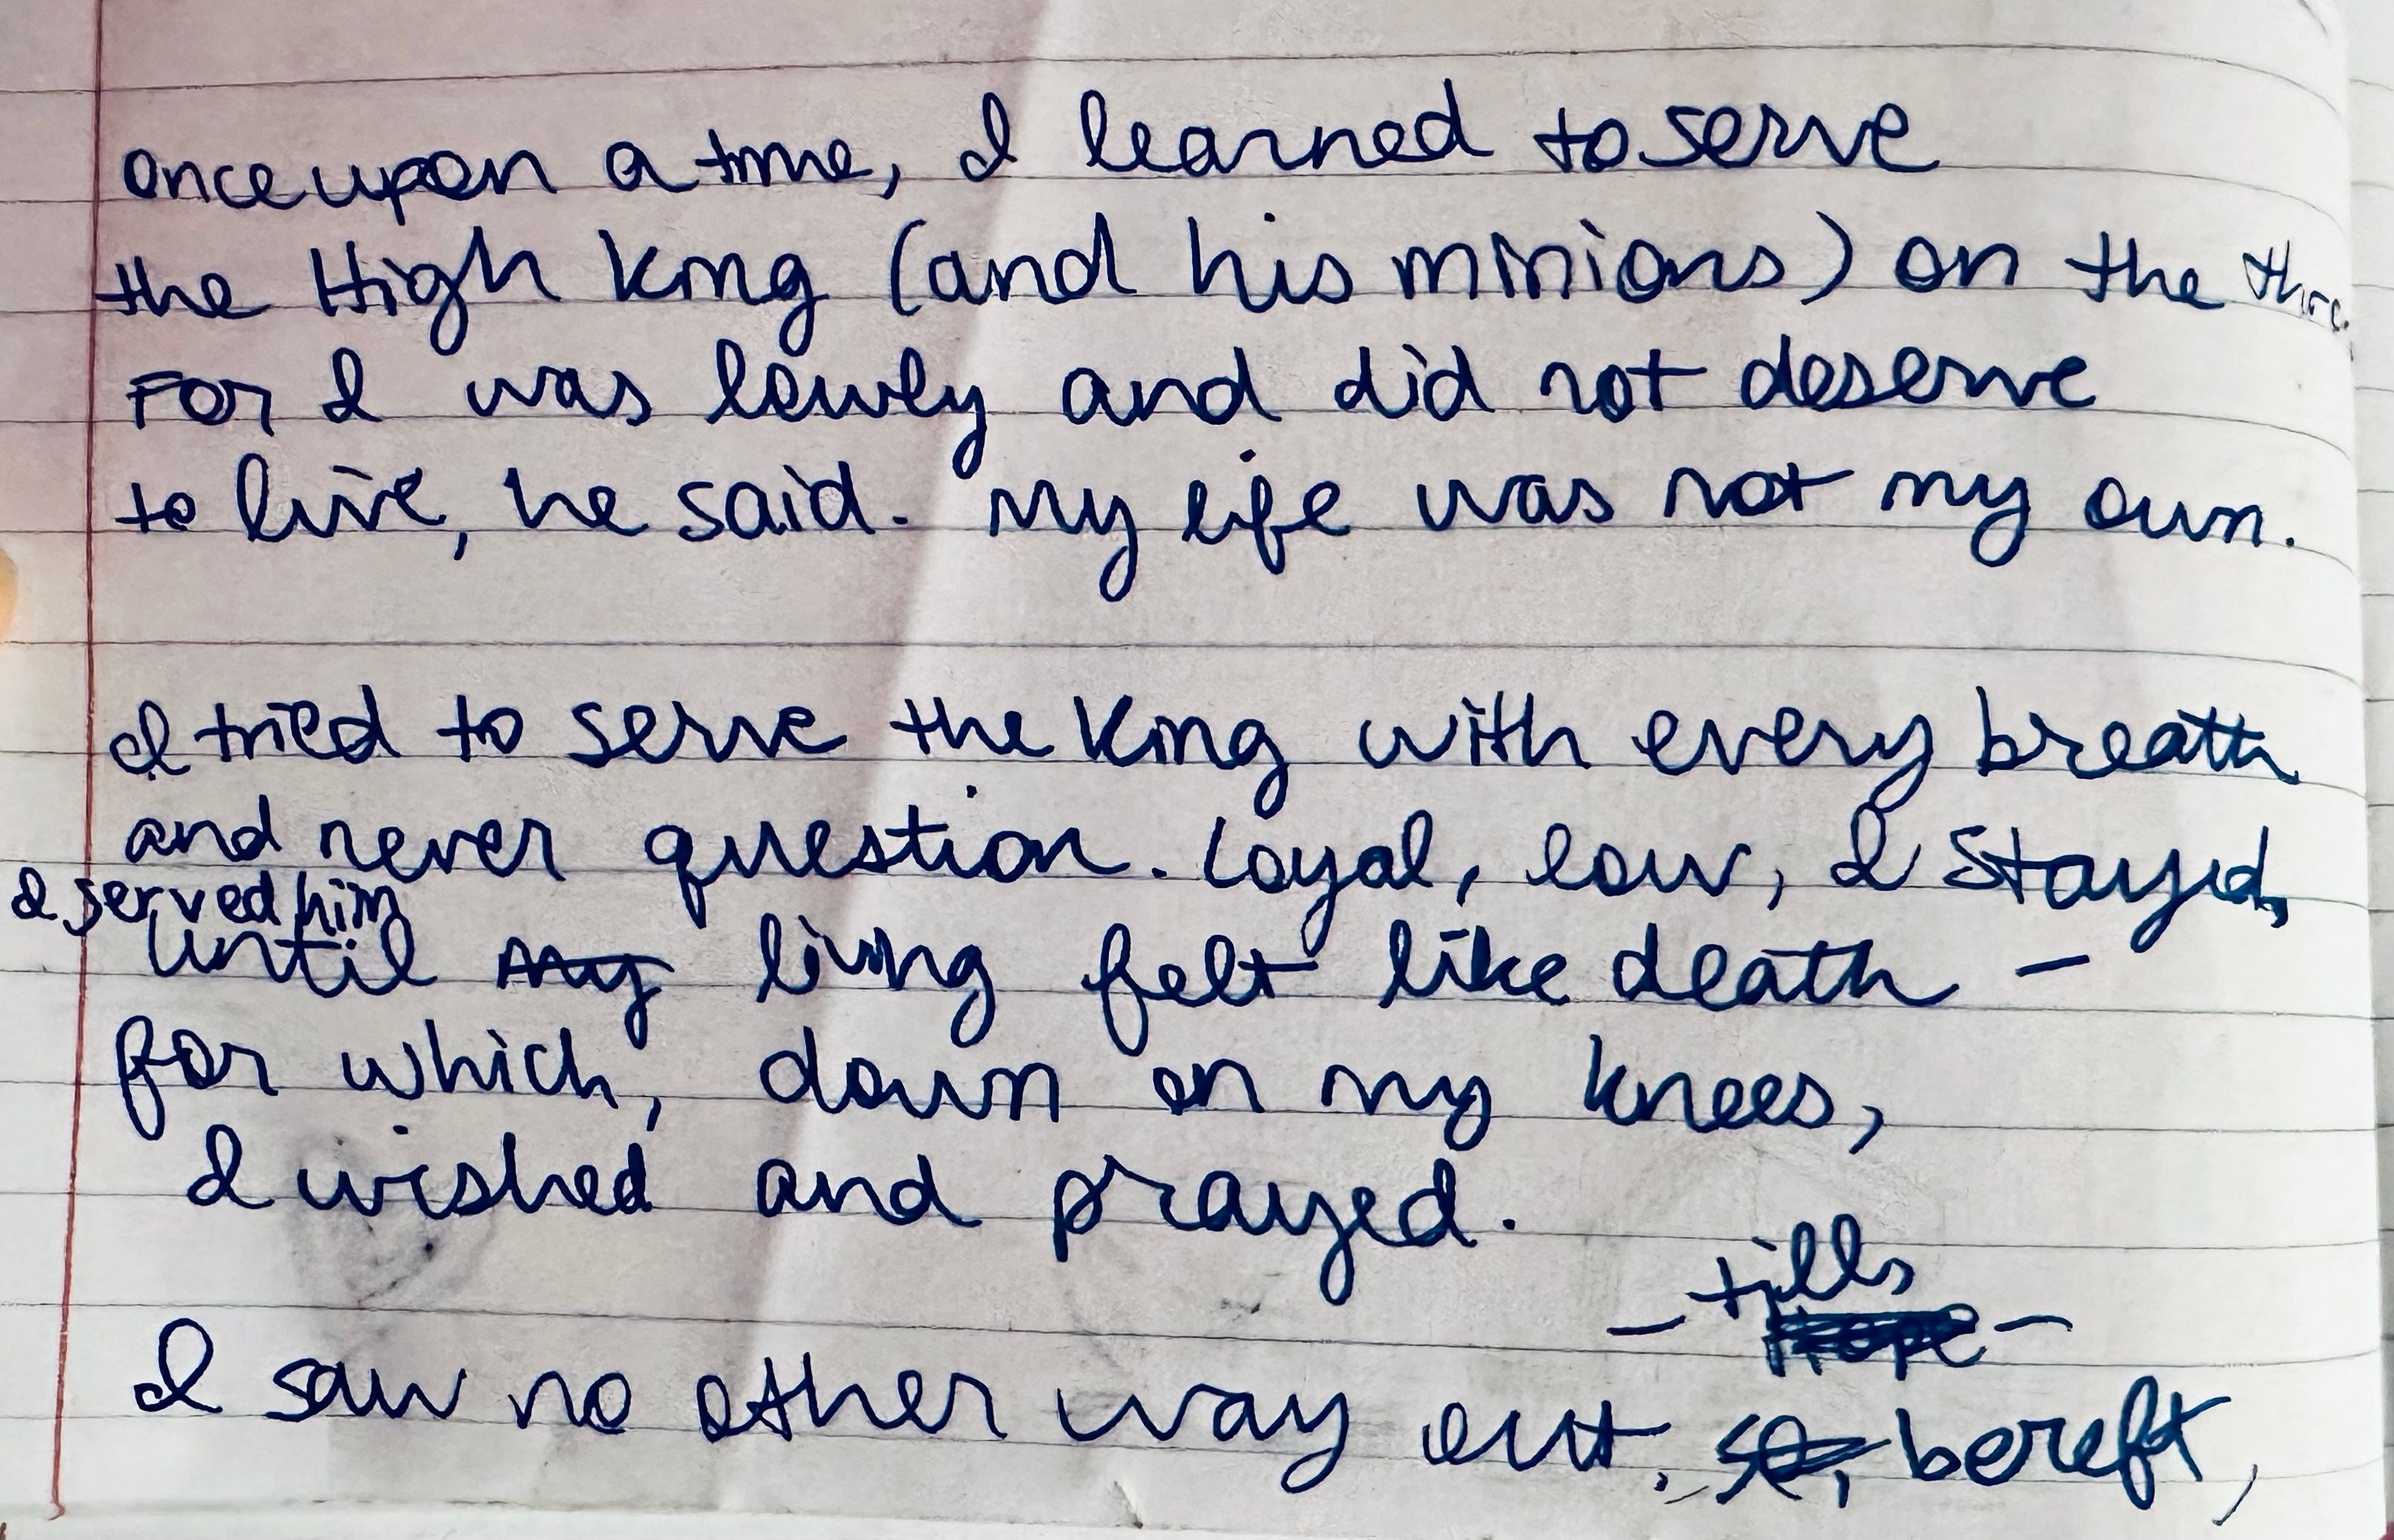 once upon a time, I learned to serve
the High King (and his minions) on the
For I was lowly and did not deserve
to live, he said. My life was not my own.
I tried to serve the King with every breath
and never question. Loyal, low, I stayed,
I served him
until my living felt like death –
for which, down on my knees,
I wished and prayed.
– tills –
I saw no other way out, so, bereft,